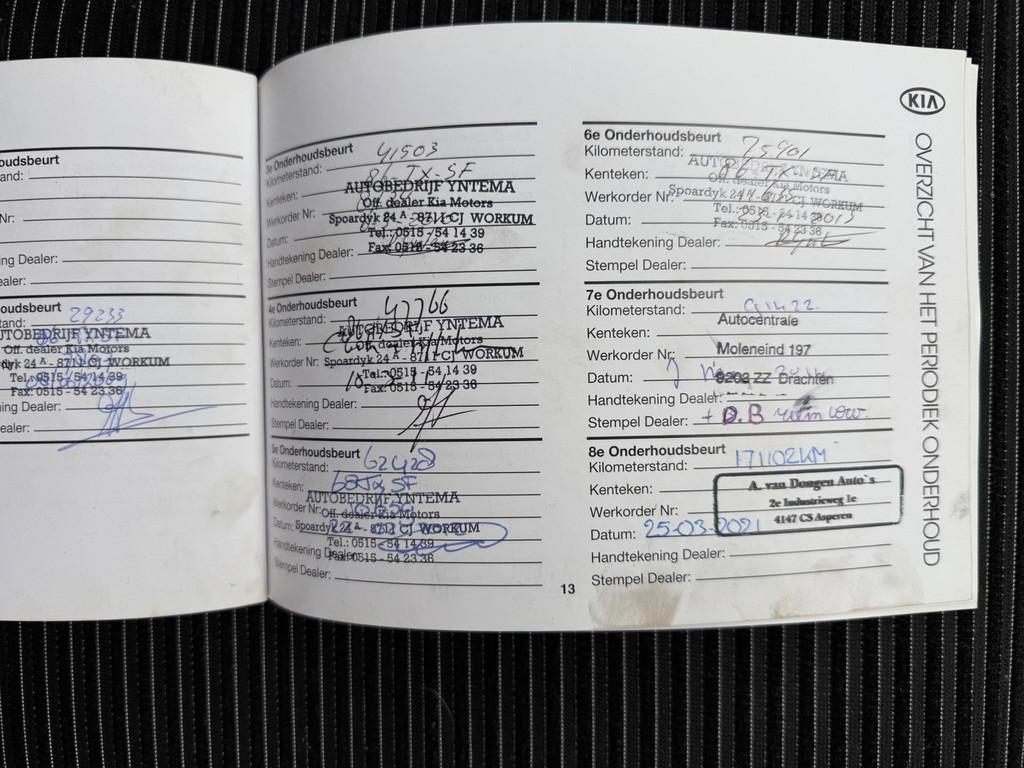 oudsbeurt
and:
Nr:
ng Dealer:
ealer:
oudsbeurt
and: 29233
UTOBEDRIJF YNTEMA
Off. dealer Kia Motors
dyk 24 A - 8711 CJ WORKUM
Tel.: 0515 - 54 14 39
Fax: 0515 - 54 23 36
ing Dealer:
ealer:
3e Onderhoudsbeurt
Kilometerstand: 41503
Kenteken: 86-TX-SF
AUTOBEDRIJF YNTEMA
Off. dealer Kia Motors
Werkorder Nr:
Spoardyk 24 A - 8711 CJ WORKUM
Datum:
Tel.: 0515 - 54 14 39
Fax: 0515 - 54 23 36
Handtekening Dealer:
Stempel Dealer:
4e Onderhoudsbeurt
Kilometerstand: 47766
AUTOBEDRIJF YNTEMA
Kenteken:
Off. dealer Kia Motors
Werkorder Nr:
Spoardyk 24 A - 8711 CJ WORKUM
Tel.: 0515 - 54 14 39
Datum:
Fax: 0515 - 54 23 36
Handtekening Dealer:
Stempel Dealer:
5e Onderhoudsbeurt
Kilometerstand: 62428
Kenteken: 68 TX SF
AUTOBEDRIJF YNTEMA
Werkorder Nr:
Off. dealer Kia Motors
Datum:
Spoardyk 24 A - 8711 CJ WORKUM
Tel.: 0515 - 54 14 39
Handtekening Dealer:
Fax: 0515 - 54 23 36
Stempel Dealer:
13
6e Onderhoudsbeurt
Kilometerstand: 75901
AUTOBEDRIJF YNTEMA
Kenteken:
Off. dealer Kia Motors
Werkorder Nr:
Spoardyk 24 A - 8711 CJ WORKUM
Datum:
Tel.: 0515 - 54 14 39
Fax: 0515 - 54 23 36
Handtekening Dealer:
Stempel Dealer:
7e Onderhoudsbeurt
Kilometerstand: 91422
Autocentrale
Kenteken:
Werkorder Nr:
Moleneind 197
Datum:
9203 ZZ Drachten
Handtekening Dealer:
Stempel Dealer: + D.B riem
8e Onderhoudsbeurt
Kilometerstand: 171102KM
Kenteken:
A. van Dongen Auto's
Werkorder Nr:
2e Industrieweg 1e
4147 CS Asperen
Datum: 25-03-2021
Handtekening Dealer:
Stempel Dealer:
KIA
OVERZICHT VAN HET PERIODIEK ONDERHOUD